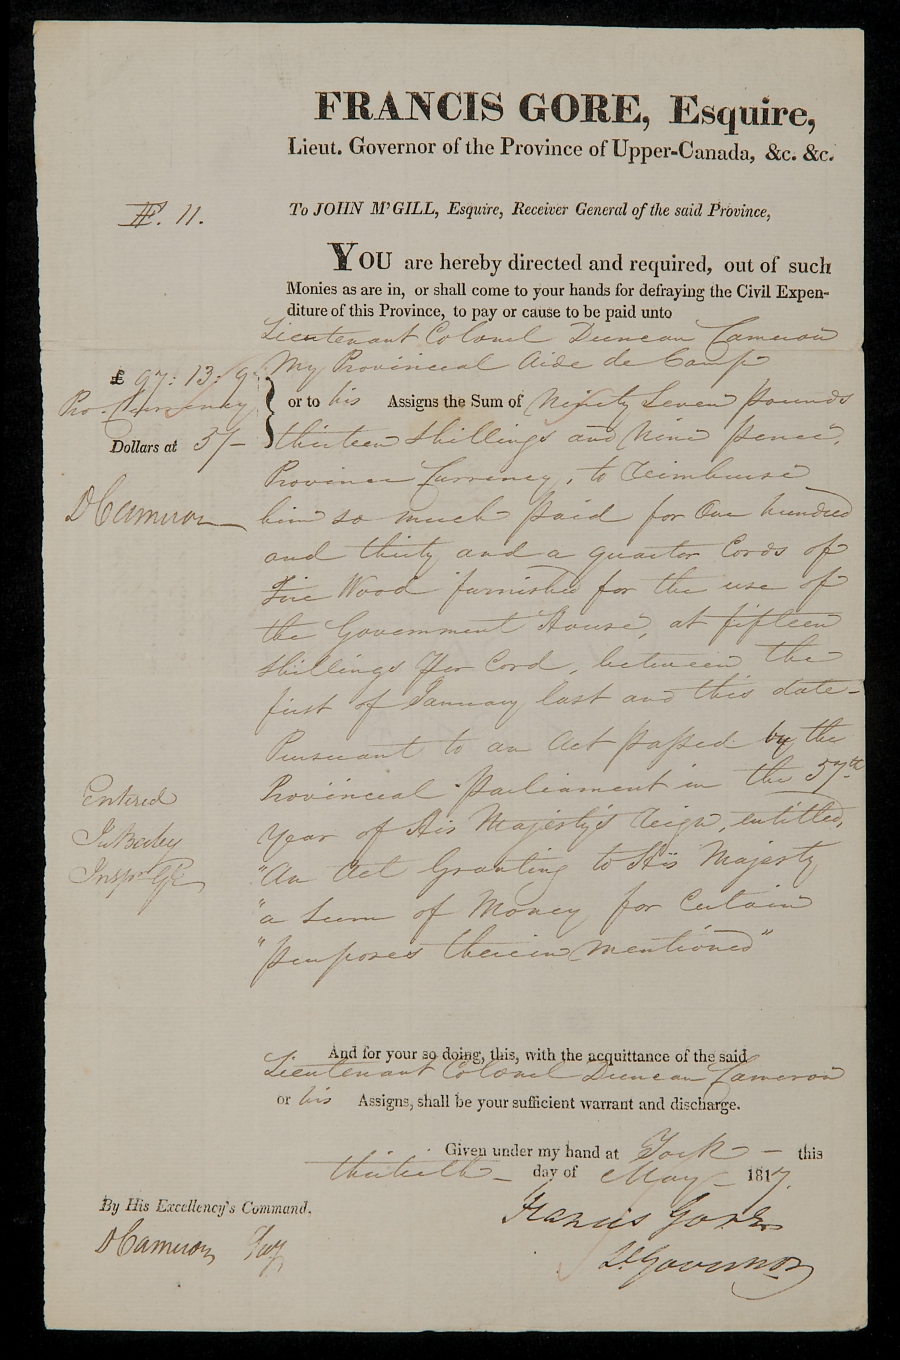 FRANCIS GORE, Esquire,
Lieut. Governor of the Province of Upper-Canada, &c. &c.
11.
To JOHN M'GILL, Esquire, Receiver General of the said Province,
YOU are hereby directed and required, out of such
Monies as are in, or shall come to your hands for defraying the Civil Expen-
diture of this Province, to pay or cause to be paid unto
Lieutenant Colonel Duncan Cameron
My Provincial Aide de Camp
£ 97: 13: 9.
Pro. Currency
Dollars at 5/-
or to his Assigns the Sum of Ninety Seven pounds
thirteen Shillings and Nine pence,
Province Currency, to Reimburse
D Cameron
him so much paid for One hundred
and thirty and a quarter Cords of
Fire Wood furnished for the use of
the Government House, at fifteen
Shillings Per Cord, between the
first of January last and this date-
Pursuant to an Act passed by the
Provincial Parliament in the 57th
Year of His Majesty's Reign, entitled,
"An Act Granting to His Majesty
"a Sum of Money for Certain
"purposes therein mentioned"
Entered
Js. Baby
Inspr. Gl
And for your so doing, this, with the acquittance of the said
Lieutenant Colonel Duncan Cameron
or his Assigns, shall be your sufficient warrant and discharge.
Given under my hand at York - this
thirtieth - day of May - 1817.
Francis Gore
Lt. Governor
By His Excellency's Command.
D Cameron